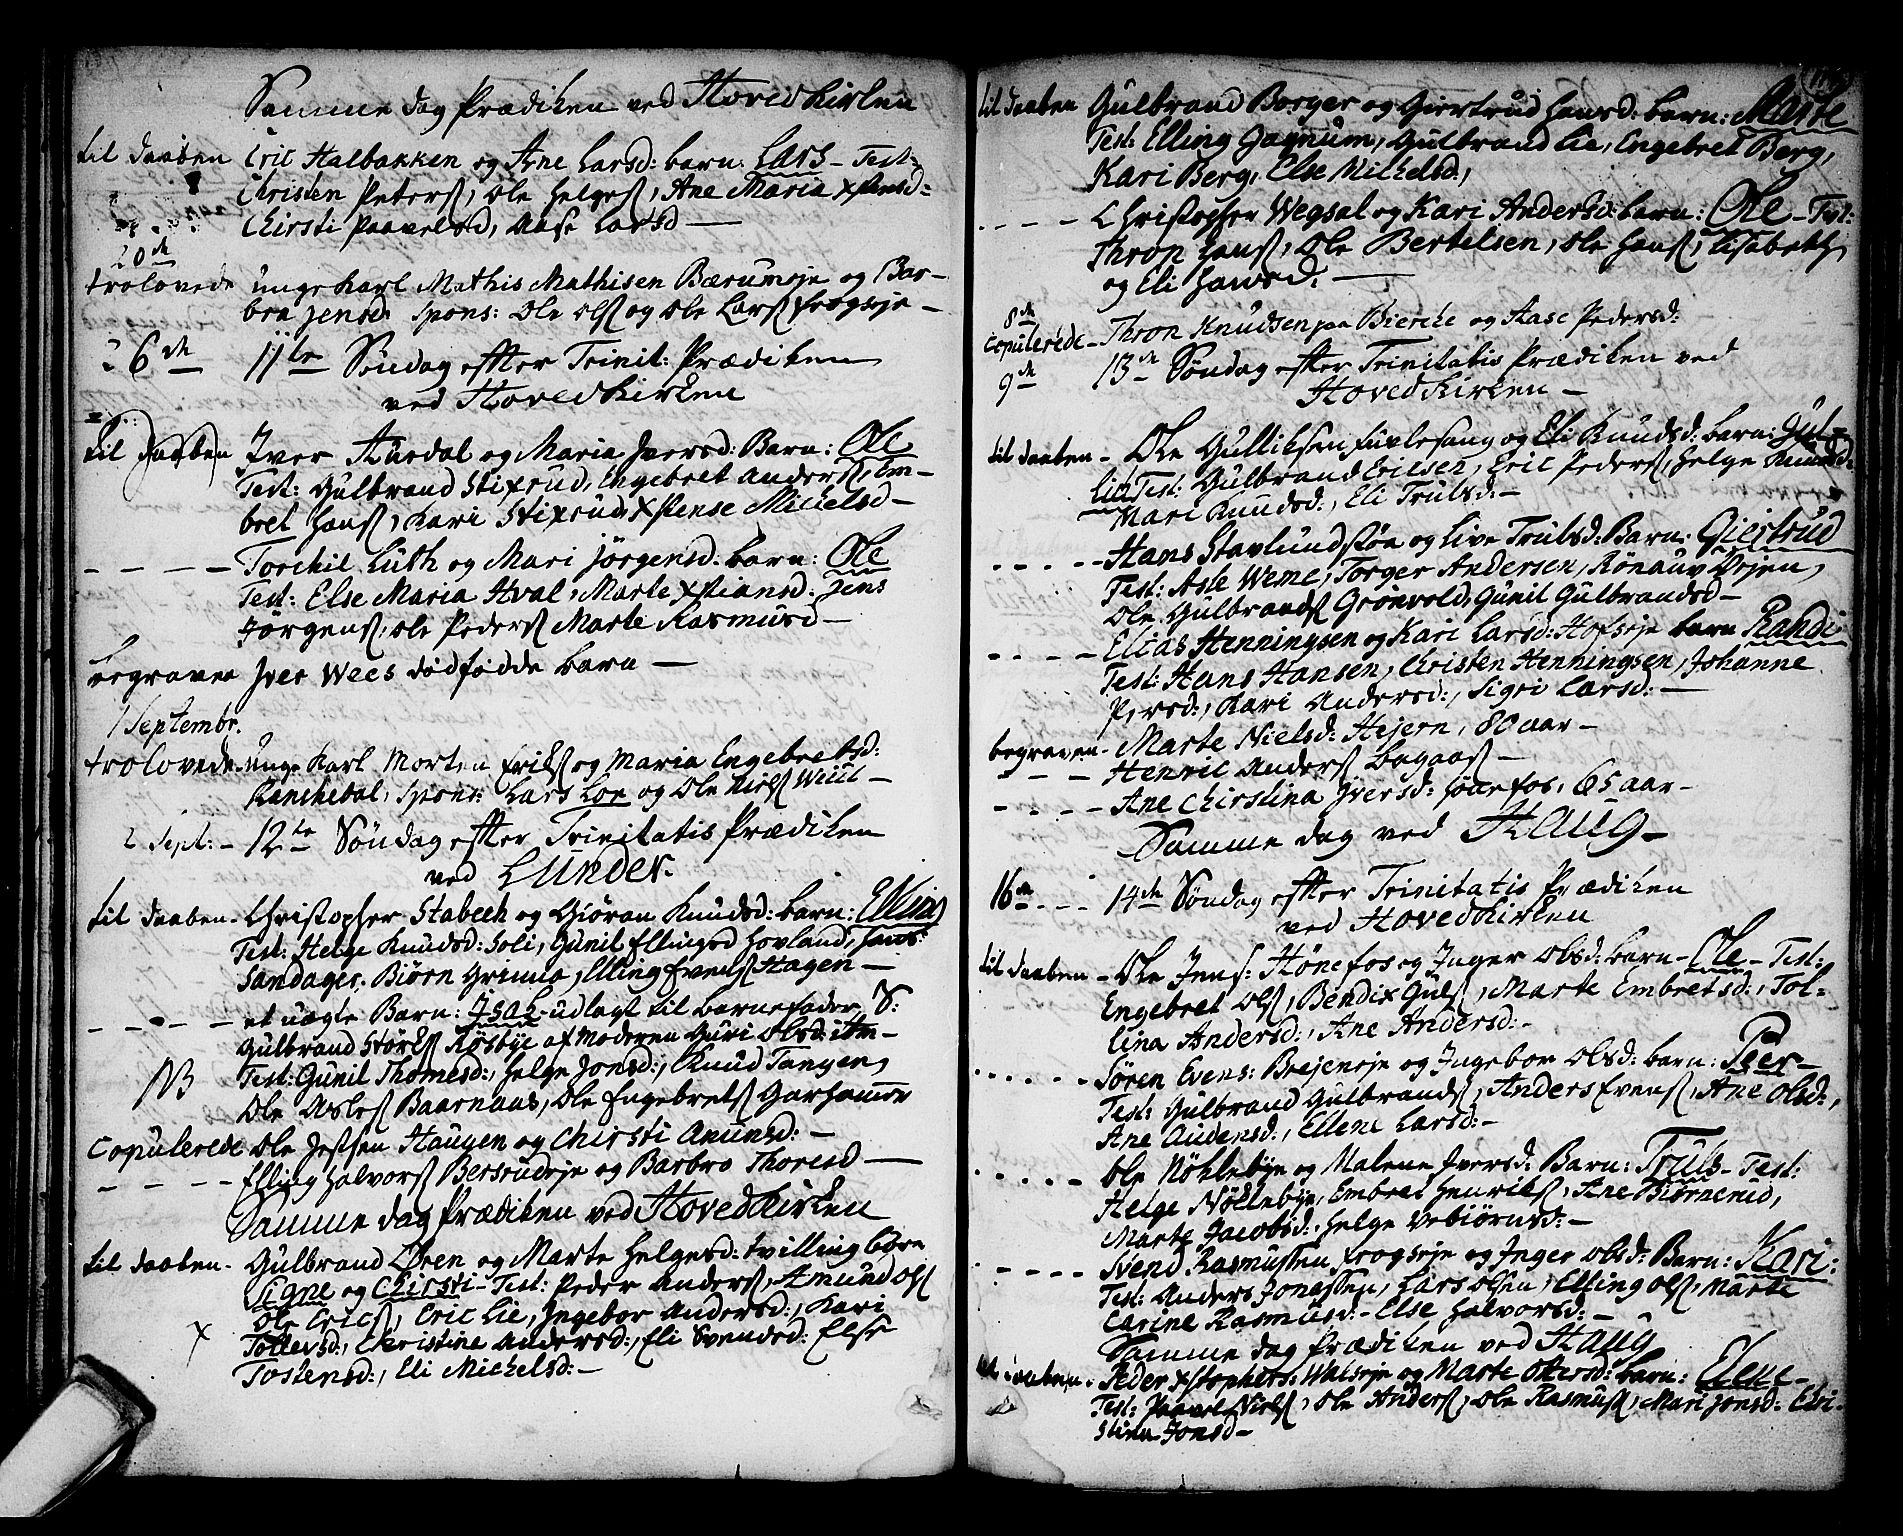 Samme dag Prædiken ved Hovedkirken
til daaben Eric Halbakken og Ane Larsd: barn: Lars - Test:
Christen Peters, Ole Helges, Ane Maria Xstensd:
Chirsti Paavelsd, Aase Larsd —
20de
trolovede unge Karl Mathis Mathisen Bærumeje og Bar-
bra Jensd. Spons: Ole Ols og Ole Lars Frogseje -
26de 11te Søndag efter Trinit: Prædiken
ved Hovedkirken
til daaben Iver Aurdal og Maria Iversd: Barn: Ole
Test: Gulbrand Stixrud, Engebret Anders, Em-
bret Hans, Kari Stixrud, Xstense Michelsd -
- - - - Torchil Luth og Mari Jørgensd. barn: Ole
Test: Else Maria Hval, Marte Xstiansd: Jens
Jørgens, Ole Peders Marte Rasmusd -
begraven Iver Wees dødfødde barn —
1 Septembr.
trolovede unge Karl Morten Eriks og Maria Engebretsd:
Ranchedal, Spons: Lars Loe og Ole Niels -
2 Sept: - 12te Søndag efter Trinitatis Prædiken
ved Lunder.
til daaben - Christopher Stabech og Giøran Knudsd: barn: Elling
Test: Helge Knudsd: Soli, Gunil Ellingsd Hovland, Hans
Sandager, Biørn Grimmo, Elling Evens Hagen -
- - - - et uægte Barn: Isac udlagt til barnefader S:
Gulbrand Størks Røsbye af Moderen Guri Olsd:
NB Test: Gunil Thomesd:, Helge Jonsd:, Knud Tangen,
Ole Asles Baarnaas, Ole Engebrets Garhamme
Copulerede Ole Jessen Haugen og Chirsti Amunsd: -
- - - - Elling Halvors Bersrudeje og Barbro Thoresd —
Samme dag Prædiken ved Hovedkirken
til daaben - Gulbrand Øren og Marte Helgesd: tvilling børn
Signe og Chirsti - Test: Peder Anders, Amund Ols
Ole Erics, Eric Lie, Ingebor Andersd:, Kari
X Tollevsd:, Christine Andersd:, Eli Svendsd: Else
Tostensd:, Eli Michelsd: -
til daaben Gulbrand Borger og Giertrud Hansd: barn: Marte
Test: Elling Gagnum, Gulbrand Lie, Engebret Berg,
Kari Berg, Else Michelsd:,
- - - - Christopher Wegsal og Kari Andersd: barn: Ole - Test:
Thron Hans, Ole Bertelsen, Ole Hans, Elisabeth
og Eli Hansd: —
8de
Copulerede - Thron Knudsen paa Bierche og Aase Pedersd:
9de 13de Søndag efter Trinitatis Prædiken ved
Hovedkirken -
til daaben - Ole Gulliksen Fuglesang og Eli Knudsd: barn: Gul-
lic Test: Gulbrand Ericsen, Eric Peders, Helge Knudsd:
Mari Knudsd:, Eli Trulsd: -
- - - - Hans Stavlundstøe og Live Trulsd: Barn: Giertrud
Test: Aste Weme, Torger Andersen, Rønauv Vejen,
Ole Gulbrands Grønvold, Gunil Gulbrandsd -
- - - - Elias Henningsen og Kari Larsd: Hofseje barn Randi
Test: Hans Hansen, Christen Henningsen, Johanne
Persd:, Kari Andersd:, Sigri Larsd: —
begraven - Marte Nielsd: Hejern, 80 aar -
- - - Henric Anders Bagaas -
- - - - Ane Chirstina Iversd: Hønefos, 65 aar -
Samme dag ved Haug -
16de - - - 14de Søndag efter Trinitatis Prædiken
ved Hovedkirken
til daaben - Ole Jens: Hønefos og Inger Olsd: barn - Ole - Test:
Engebret Ols, Bendix Guls, Marte Embretsd:, Tol-
lina Andersd:, Ane Andersd: -
- - - - - Søren Evens: Brejeneje og Ingebor Olsd: barn: Peer -
Test: Gulbrand Gulbrands, Anders Evens, Ane Olsd:,
Ane Audensd:, Ellene Larsd: -
- - - - Ole Nøklebye og Malene Iversd: Barn: Truls - Test:
Helge Nøklebye, Embret Henriks, Ane Biørnerud,
Marte Jacobsd:, Helge Vebiørnsd: -
- - - - Svend Rasmussen Frogseje og Inger Olsd: Barn: Kari:
Test: Anders Jonassen, Lars Olsen, Elling Ols, Marte
Carine Rasmusd: - Else Halvorsd: -
Samme dag Prædiken ved Haug
til daaben. Peder Xstophers: Walseje og Marte Ottersd: barn: Elene -
Test: Paavel Niels, Ole Anders, Ole Rasmus, Mari Jonsd: Chri-
stina Jonsd -